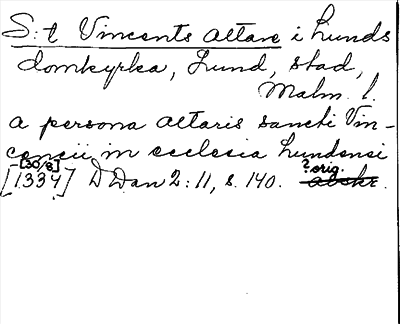 S:t Vincents altare i Lunds
domkyrka, Lund, stad,
Malm. l.
a persona altaris sancti Vin-
cencii in ecclesia Lundensi
[30/8]
[1334] DDan 2:11, s. 140. ? orig. avskr.